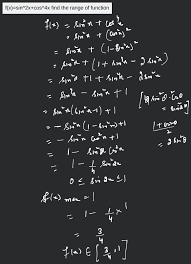 f(x)=sin^2x+cos^4x find the range of function
f(x) = sin²x + cos⁴x
= sin²x + (cos²x)²
= sin²x + (1-sin²x)²
= sin²x + (1 + sin⁴x - 2sin²x)
= sin²x + 1 + sin⁴x - 2sin²x
= sin⁴x - sin²x + 1
= sin²x (sin²x - 1) + 1
= - sin²x (1 - sin²x) + 1
= - sin²x cos²x + 1
= 1 - sin²x cos²x
= 1 - 1/4 sin²2x
0 ≤ sin²2x ≤ 1
f(x) max = 1
= 1 - 1/4 × 1
= 3/4
f(x) ∈ [3/4, 1]